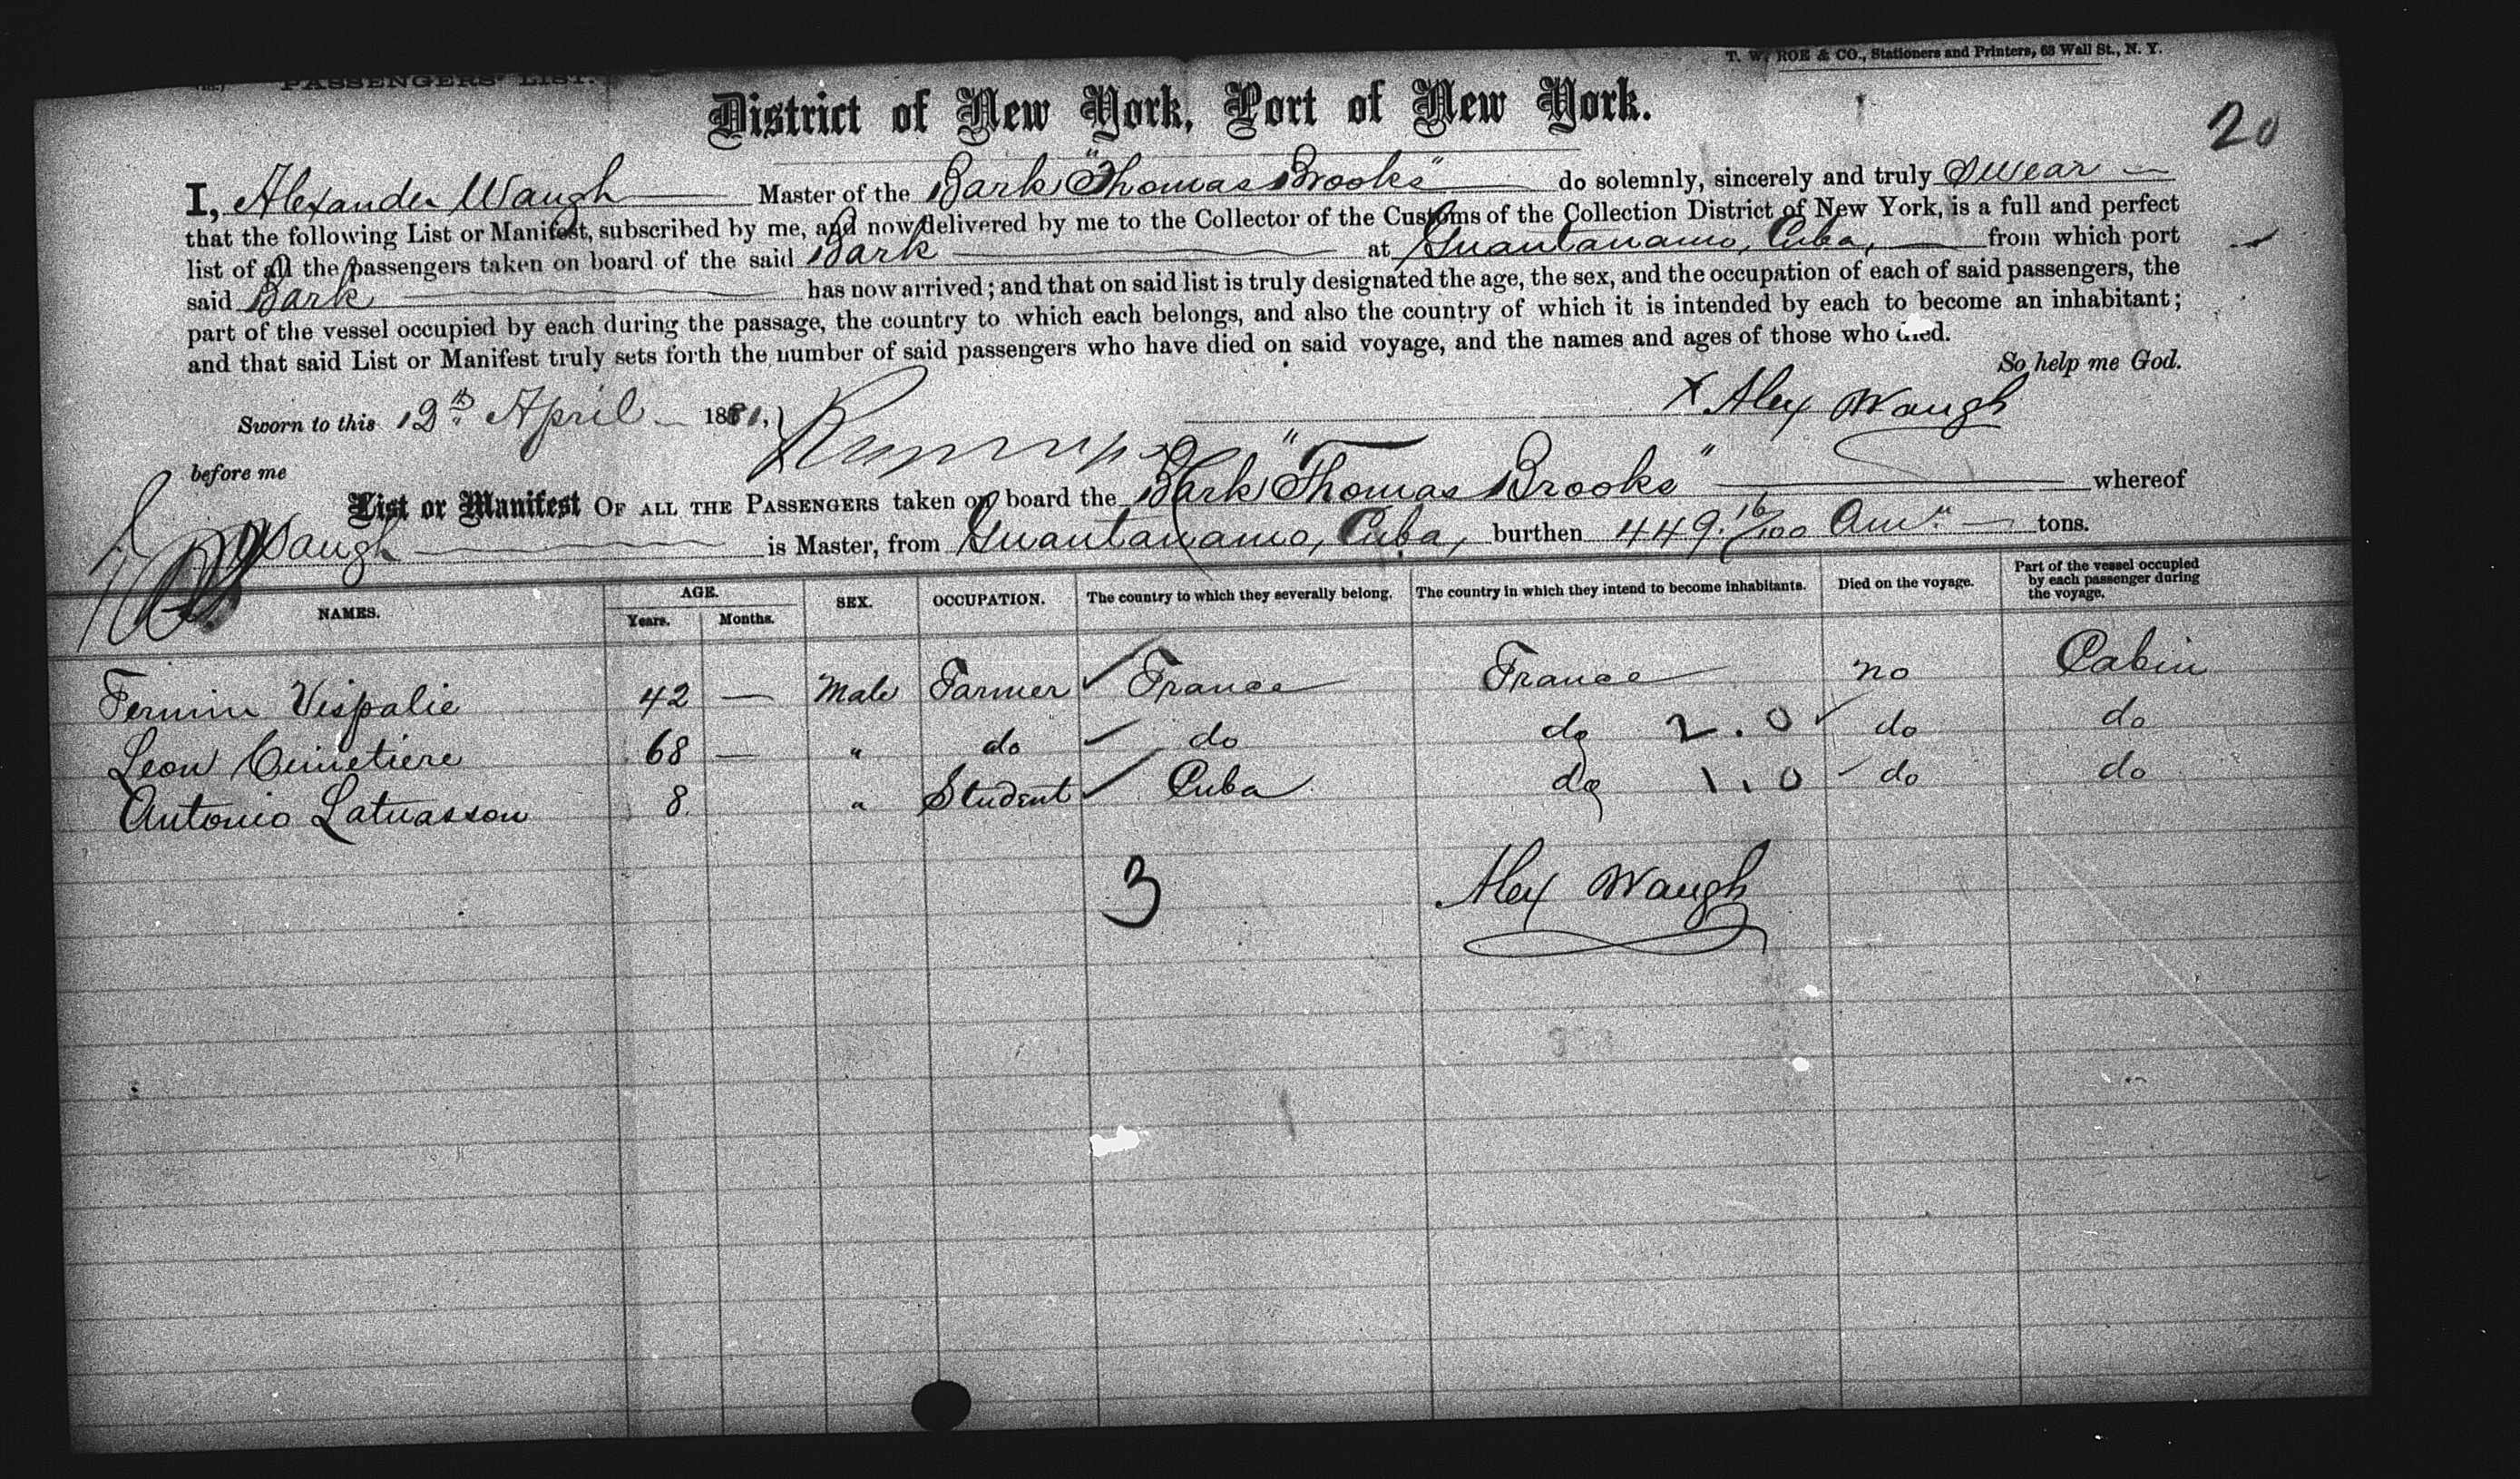 PASSENGERS' LIST.
T. W. ROE & CO., Stationers and Printers, 63 Wall St., N. Y.
District of New York, Port of New York.
20
I, Alexander Waugh Master of the Bark "Thomas Brooks" do solemnly, sincerely and truly Swear
that the following List or Manifest, subscribed by me, and now delivered by me to the Collector of the Customs of the Collection District of New York, is a full and perfect
list of all the passengers taken on board of the said Bark at Guantanamo, Cuba, from which port
said Bark has now arrived; and that on said list is truly designated the age, the sex, and the occupation of each of said passengers, the
part of the vessel occupied by each during the passage, the country to which each belongs, and also the country of which it is intended by each to become an inhabitant;
and that said List or Manifest truly sets forth the number of said passengers who have died on said voyage, and the names and ages of those who died.
So help me God.
Sworn to this 12th April 1881, x Alex Waugh
before me
List or Manifest OF ALL THE PASSENGERS taken on board the Bark "Thomas Brooks" whereof
Waugh is Master, from Guantanamo, Cuba, burthen 449. 16/100 Am. tons.
NAMES. AGE. Years. Months. SEX. OCCUPATION. The country to which they severally belong. The country in which they intend to become inhabitants. Died on the voyage. Part of the vessel occupied by each passenger during the voyage.
Fermin Vispalie 42 — Male Farmer ✓ France France no Cabin
Leon Cimetiere 68 — " do ✓ do do 2.0 ✓ do do
Antonio Latuasson 8 " Student ✓ Cuba do 1.0 ✓ do do
3 Alex Waugh